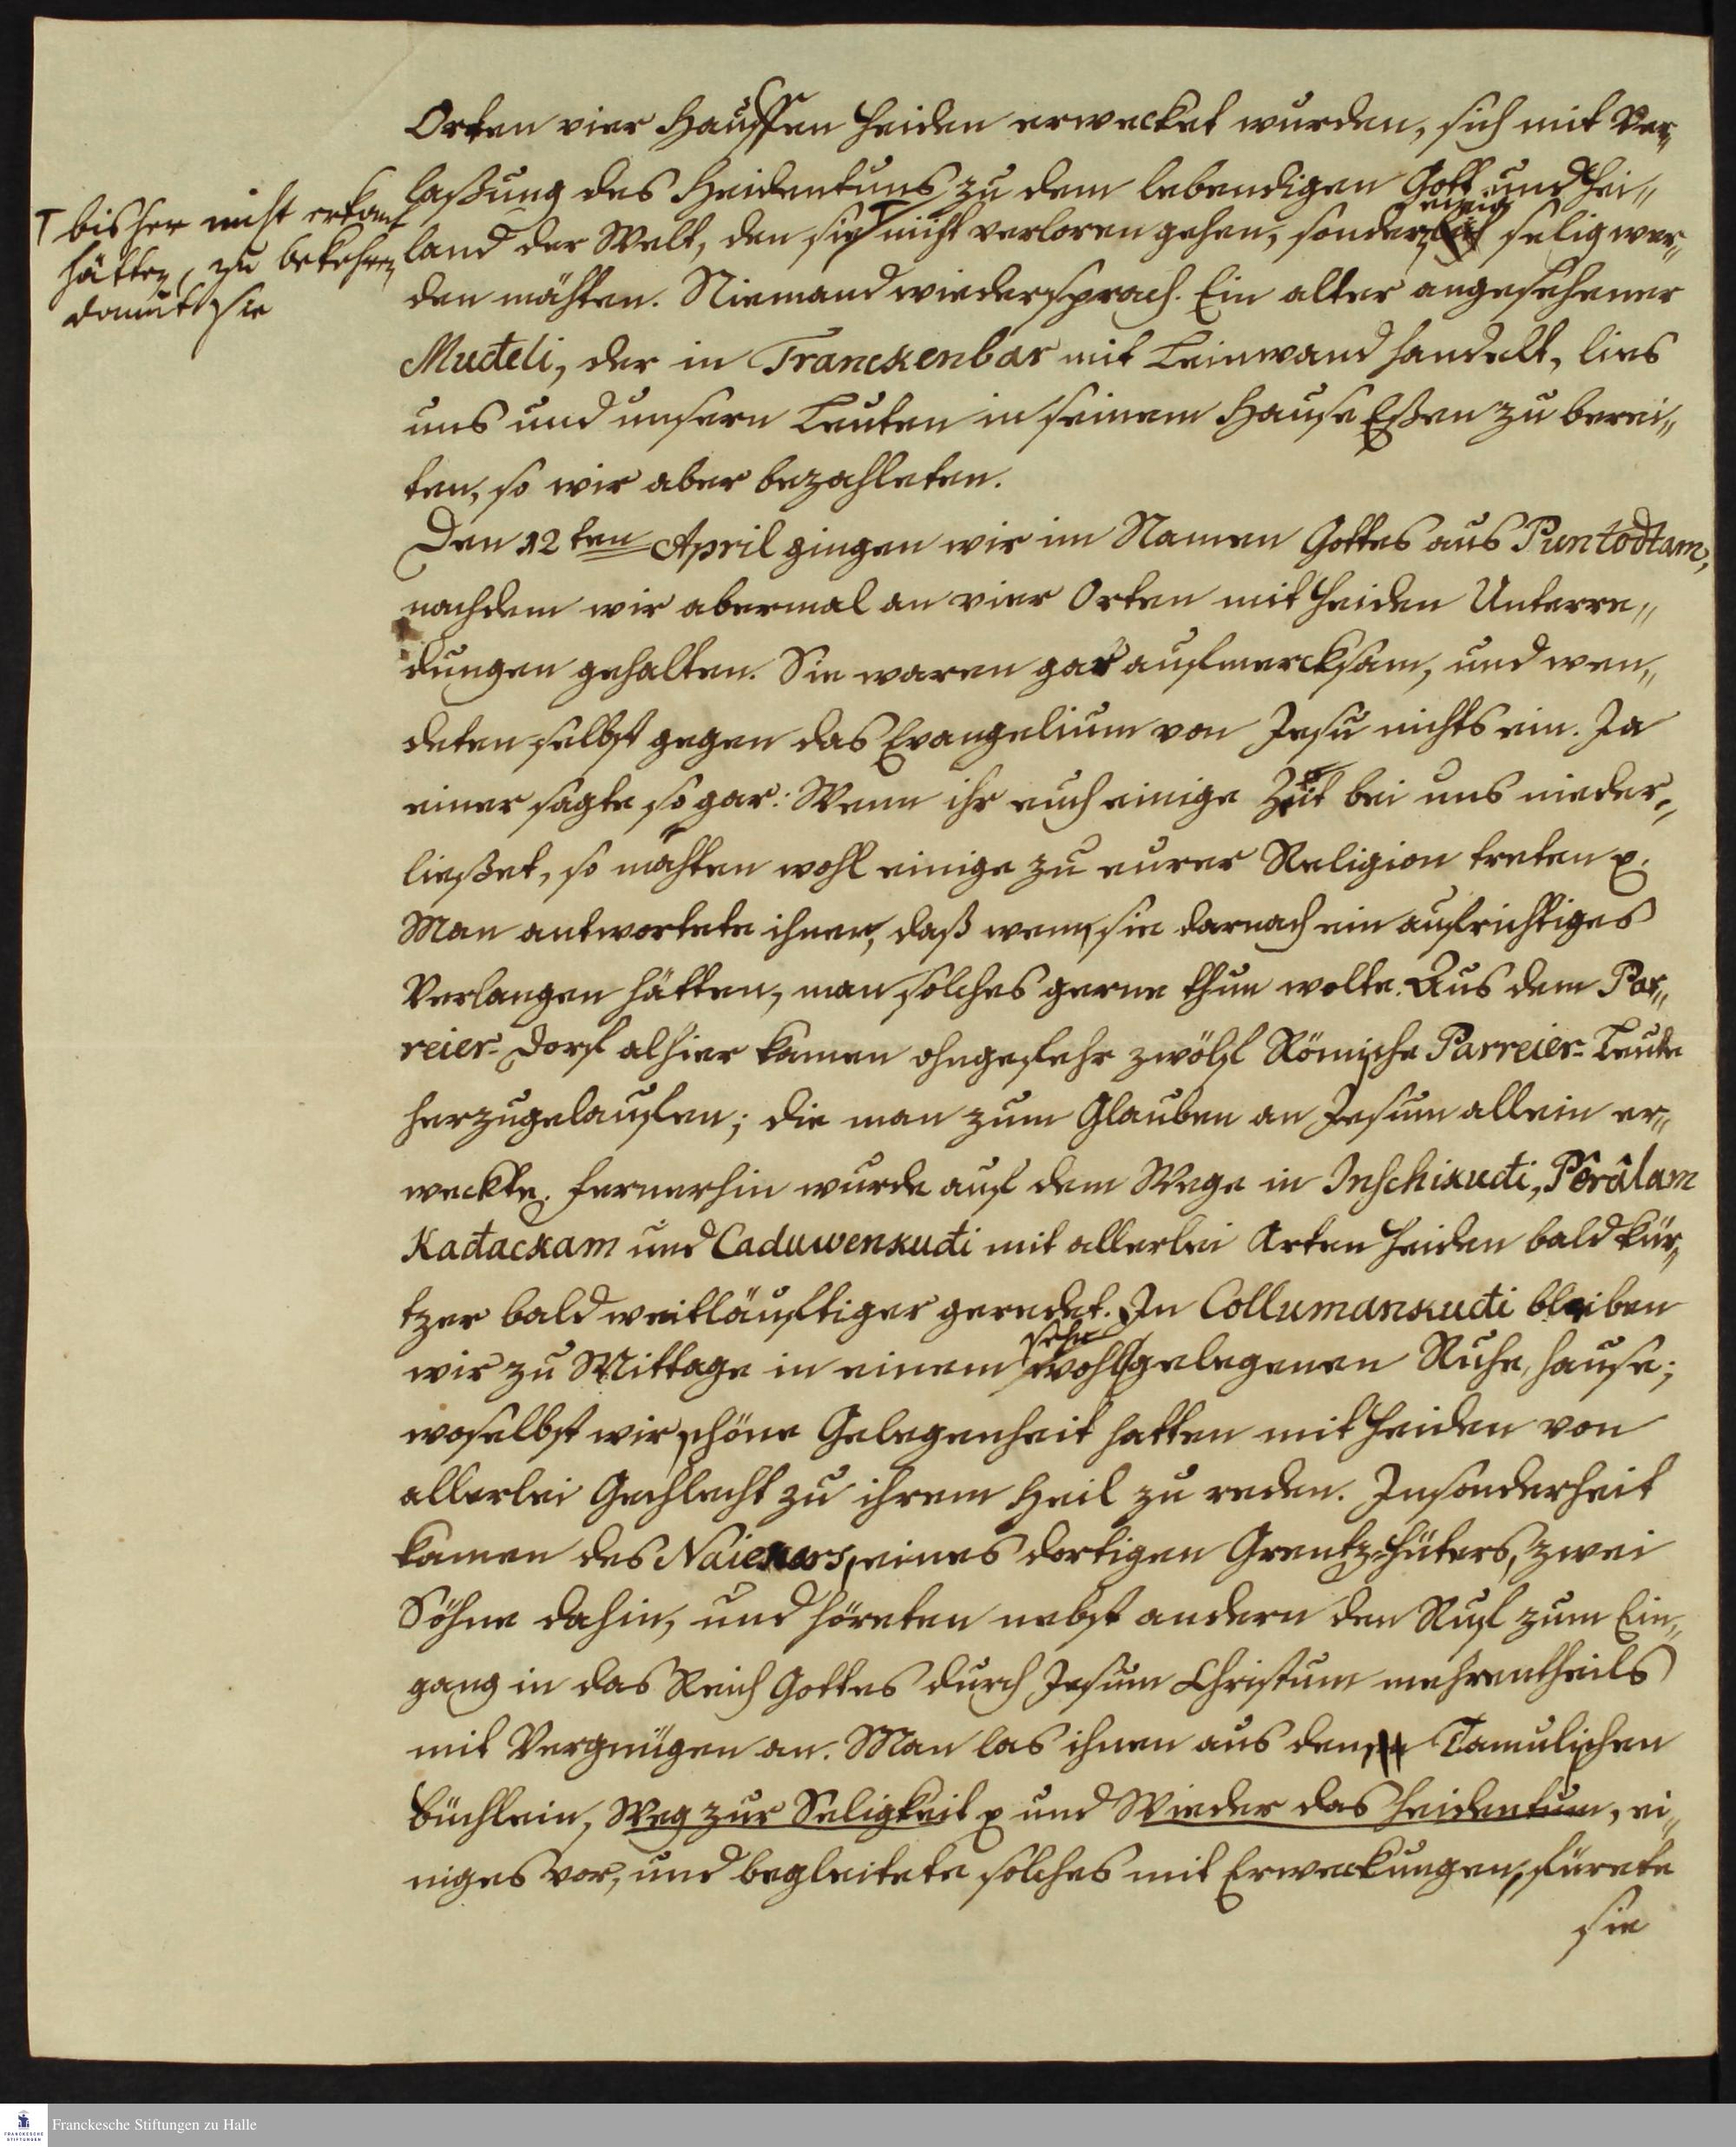 Orten vier Hauffen Heiden erwecket wurden, sich mit Ver„
laßung des Heidentums zu dem lebendigen Gott und Hei„
land der Welt, den sie nicht verloren gehen, sondern ewig selig wer„
⊤ bisher nicht erkant
hätten, zu bekehren,
damit sie
den mächten. Niemand wiedersprach. Ein alter angesehener
Muđeli, der in Tranckenbar mit Leinwand handelt, lies
uns und unsern Leuten in seinem Hause Eßen zu berei„
ten, so wir aber bezahleten.
Den 12ten April gingen wir im Namen Gottes aus Puntođtam,
nachdem wir abermal an vier Orten mit Heiden Unterre„
dungen gehalten. Sie waren gar aufmercksam, und wen„
deten selbst gegen das Evangelium von Jesu nichts ein. Ja
einer sagte so gar: Wenn ihr euch einige Zeit bei uns nieder„
ließet, so mächten wohl einige zu eurer Religion treten p.
Man antwortete ihnen, daß wenn sie darnach ein aufrichtiges
Verlangen hätten, man solches gerne thun wolte. Aus dem Par„
reier-Dorf alhier kamen ohngefehr zwölf Römische Parreier-Leute
herzugelaufen; die man zum Glauben an Jesum allein er„
weckte. Fernerhin wurde auf dem Wege in Inschikuđi, Pêrâlam
Kađackam und Caduwenkuđi mit allerlei Arten Heiden bald kür„
tzer bald weitläuftiger geredet. In Collumankuđi bleiben
wir zu Mittage in einem sehr wohlgelegenen Ruhe-Hause;
woselbst wir schöne Gelegenheit hatten mit Heiden von
allerlei Gechlecht zu ihrem Heil zu reden. Insonderheit
kamen des Naiekers, eines dortigen Grentz-Hüters, zwei
Söhne dahin, und höreten nebst andern den Ruf zum Ein„
gang in das Reich Gottes durch Jesum Christum mehrentheils
mit Vergnügen an. Man las ihnen aus den Tamulischen
Büchlein, Weg zur Seligkeit p und Wieder das Heidentum, ei„
niges vor, und begleitete solches mit Erweckungen, fürete
sie
Franckesche Stiftungen zu Halle
FRANCKESCHE
STIFTUNGEN